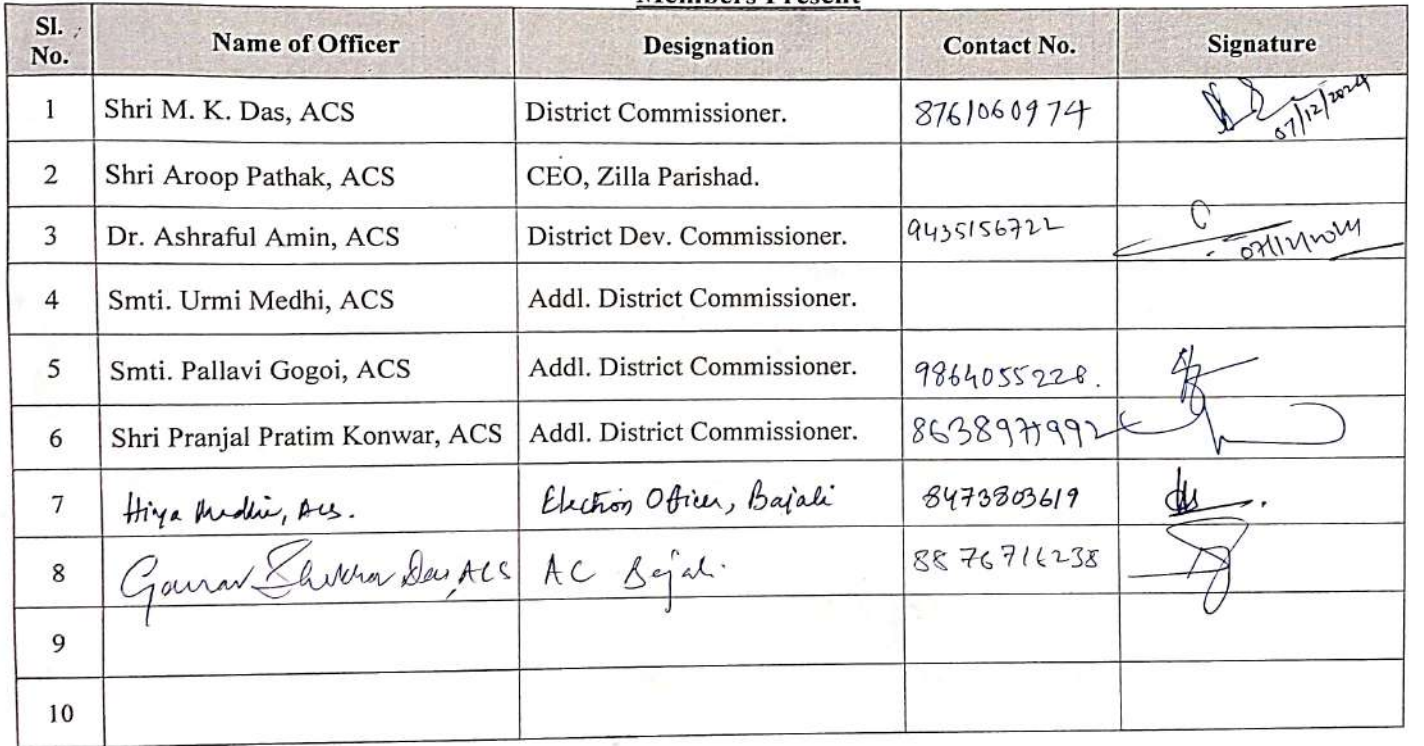 Members Present
Sl. No. Name of Officer Designation Contact No. Signature
1 Shri M. K. Das, ACS District Commissioner. 8761060974 07/12/2024
2 Shri Aroop Pathak, ACS CEO, Zilla Parishad.
3 Dr. Ashraful Amin, ACS District Dev. Commissioner. 9435156722 07/12/2024
4 Smti. Urmi Medhi, ACS Addl. District Commissioner.
5 Smti. Pallavi Gogoi, ACS Addl. District Commissioner. 9864055228.
6 Shri Pranjal Pratim Konwar, ACS Addl. District Commissioner. 8638971992
7 Hiya Medhi, ACS. Election Officer, Bajali 8473803619
8 Gaurav Shekhar Das, ACS AC Bajali. 8876716238
9
10